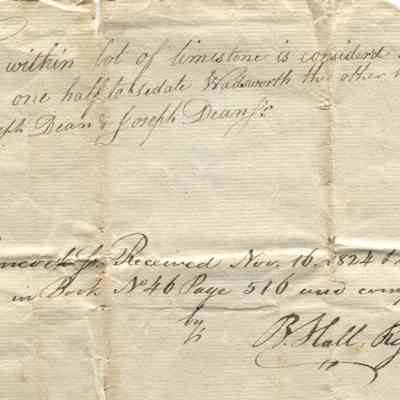 within lot of limestone is considerd
one half to sedate Wadsworth the other
eph Dean & Joseph Dean Jr
Received Nov. 16. 1824
in Book No 46 Page 516 and com
by
B. Hall, Rg